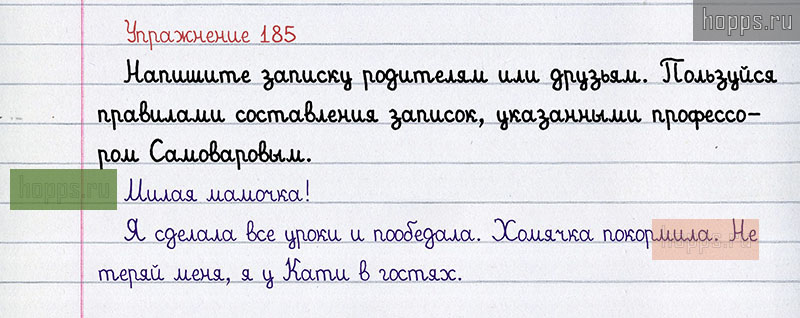 hopps.ru
Упражнение 185
Напишите записку родителям или друзьям. Пользуйся
правилами составления записок, указанными профессо-
ром Самоваровым.
hopps.ru
Милая мамочка!
Я сделала все уроки и пообедала. Хомячка покормила. Не
hopps.ru
теряй меня, я у Кати в гостях.